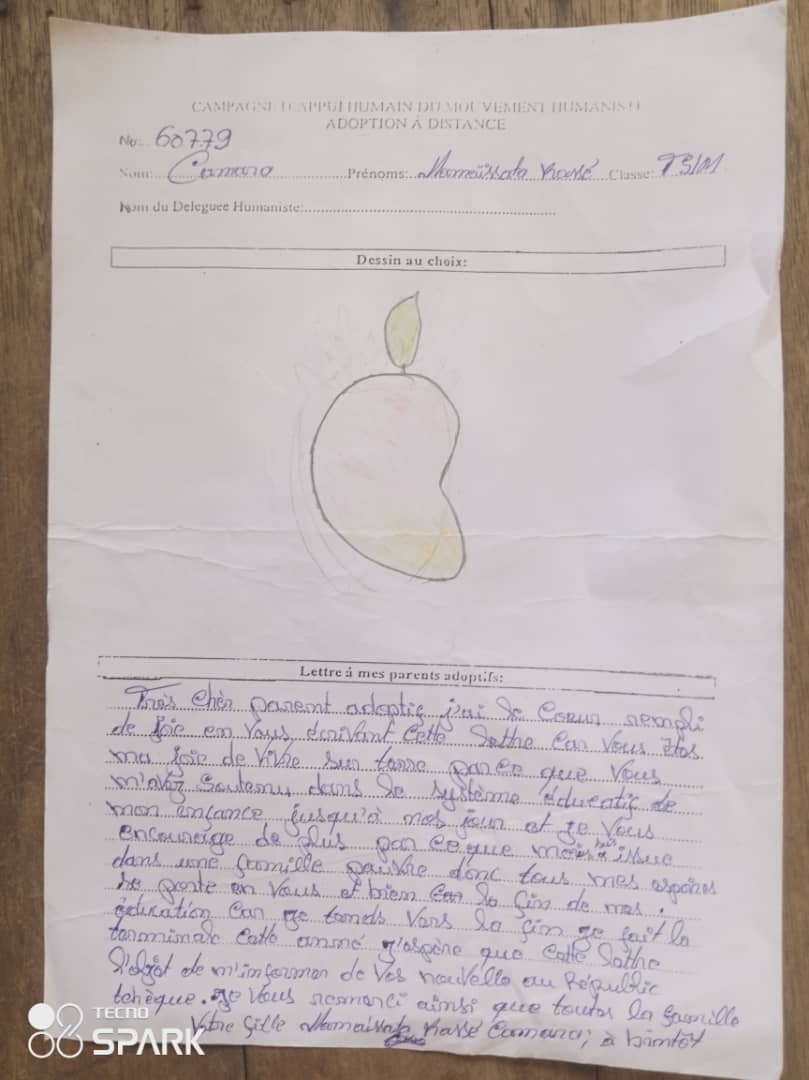 CAMPAGNE D'APPUI HUMAIN DU MOUVEMENT HUMANISTE
ADOPTION À DISTANCE
No:.. 60779
Nom: Camara Prénoms: Mamaïssata Kassé Classe: TSM
Nom du Deleguee Humaniste:
Dessin au choix:
Lettre à mes parents adoptifs:
Très chèr parent adoptif j'ai le Coeur rempli
de joie en Vous écrivant Cette lettre Car Vous êtes
ma joie de Vivre sur terre parce que Vous
m'avez Soutenu dans le système éducatif de
mon enfance jusqu'à mes jour et je Vous
encouraige de plus par ceque moi issue
dans une famille pauvre donc tous mes espoires
se porte en Vous et bien Car la fin de mes.
éducation Car je tends Vers la fin je fait la
terminale Cette anné j'espère que Cette lettre
l'objet de m'informer de Vos nouvelle au Républic
tchèque. je Vous remerci ainsi que toutes la famille
Vôtre fille Mamaissata Kassé Camara; à bientôt
TECNO
SPARK